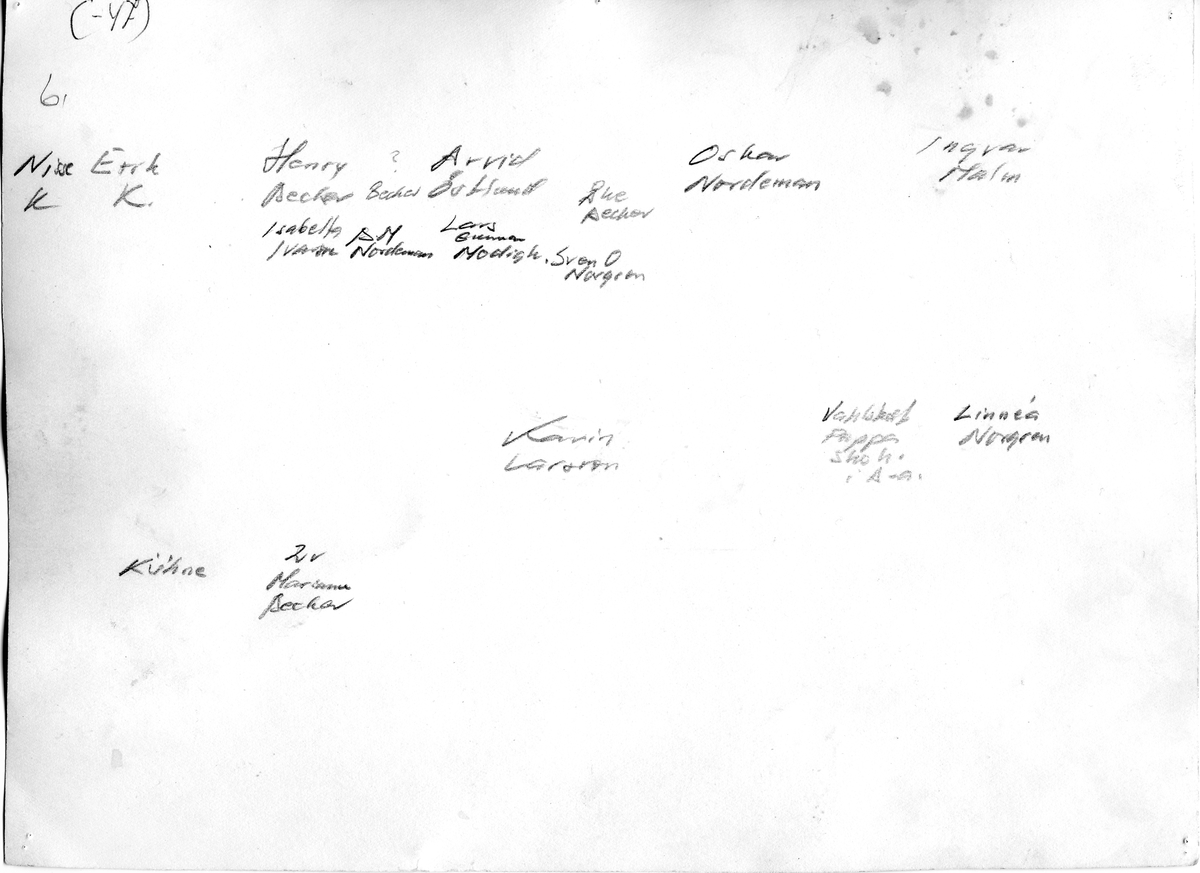 (-47)
6,
Nisse Erik Henry ? Arvid Oskar Ingvar
K K. Becker Becker Nordeman Malm
Åke
Becker
Isabella AM Lars
Gunnar
Nordeman Modigh. Sven O
Norgren
Linnéa
Karin Pappa Norgren
Larsson Skoh.
i A-a.
Kühne 2v
Marianne
Becker